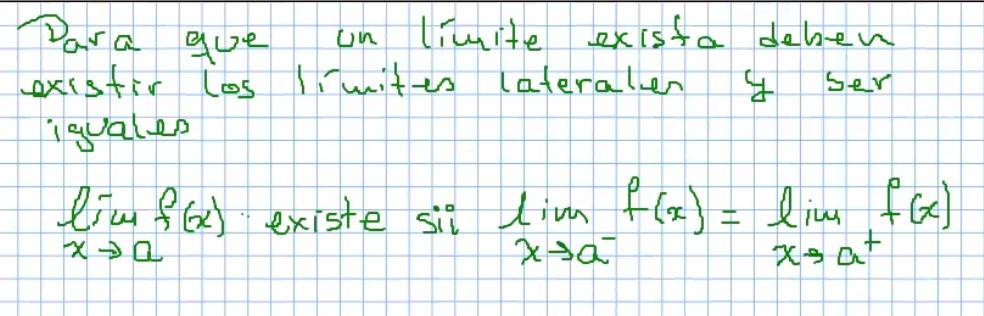 Para que un límite exista deben
existir los límites laterales y ser
iguales
lím f(x) existe sii lim f(x) = lim f(x)
x→a x→a⁻ x→a⁺